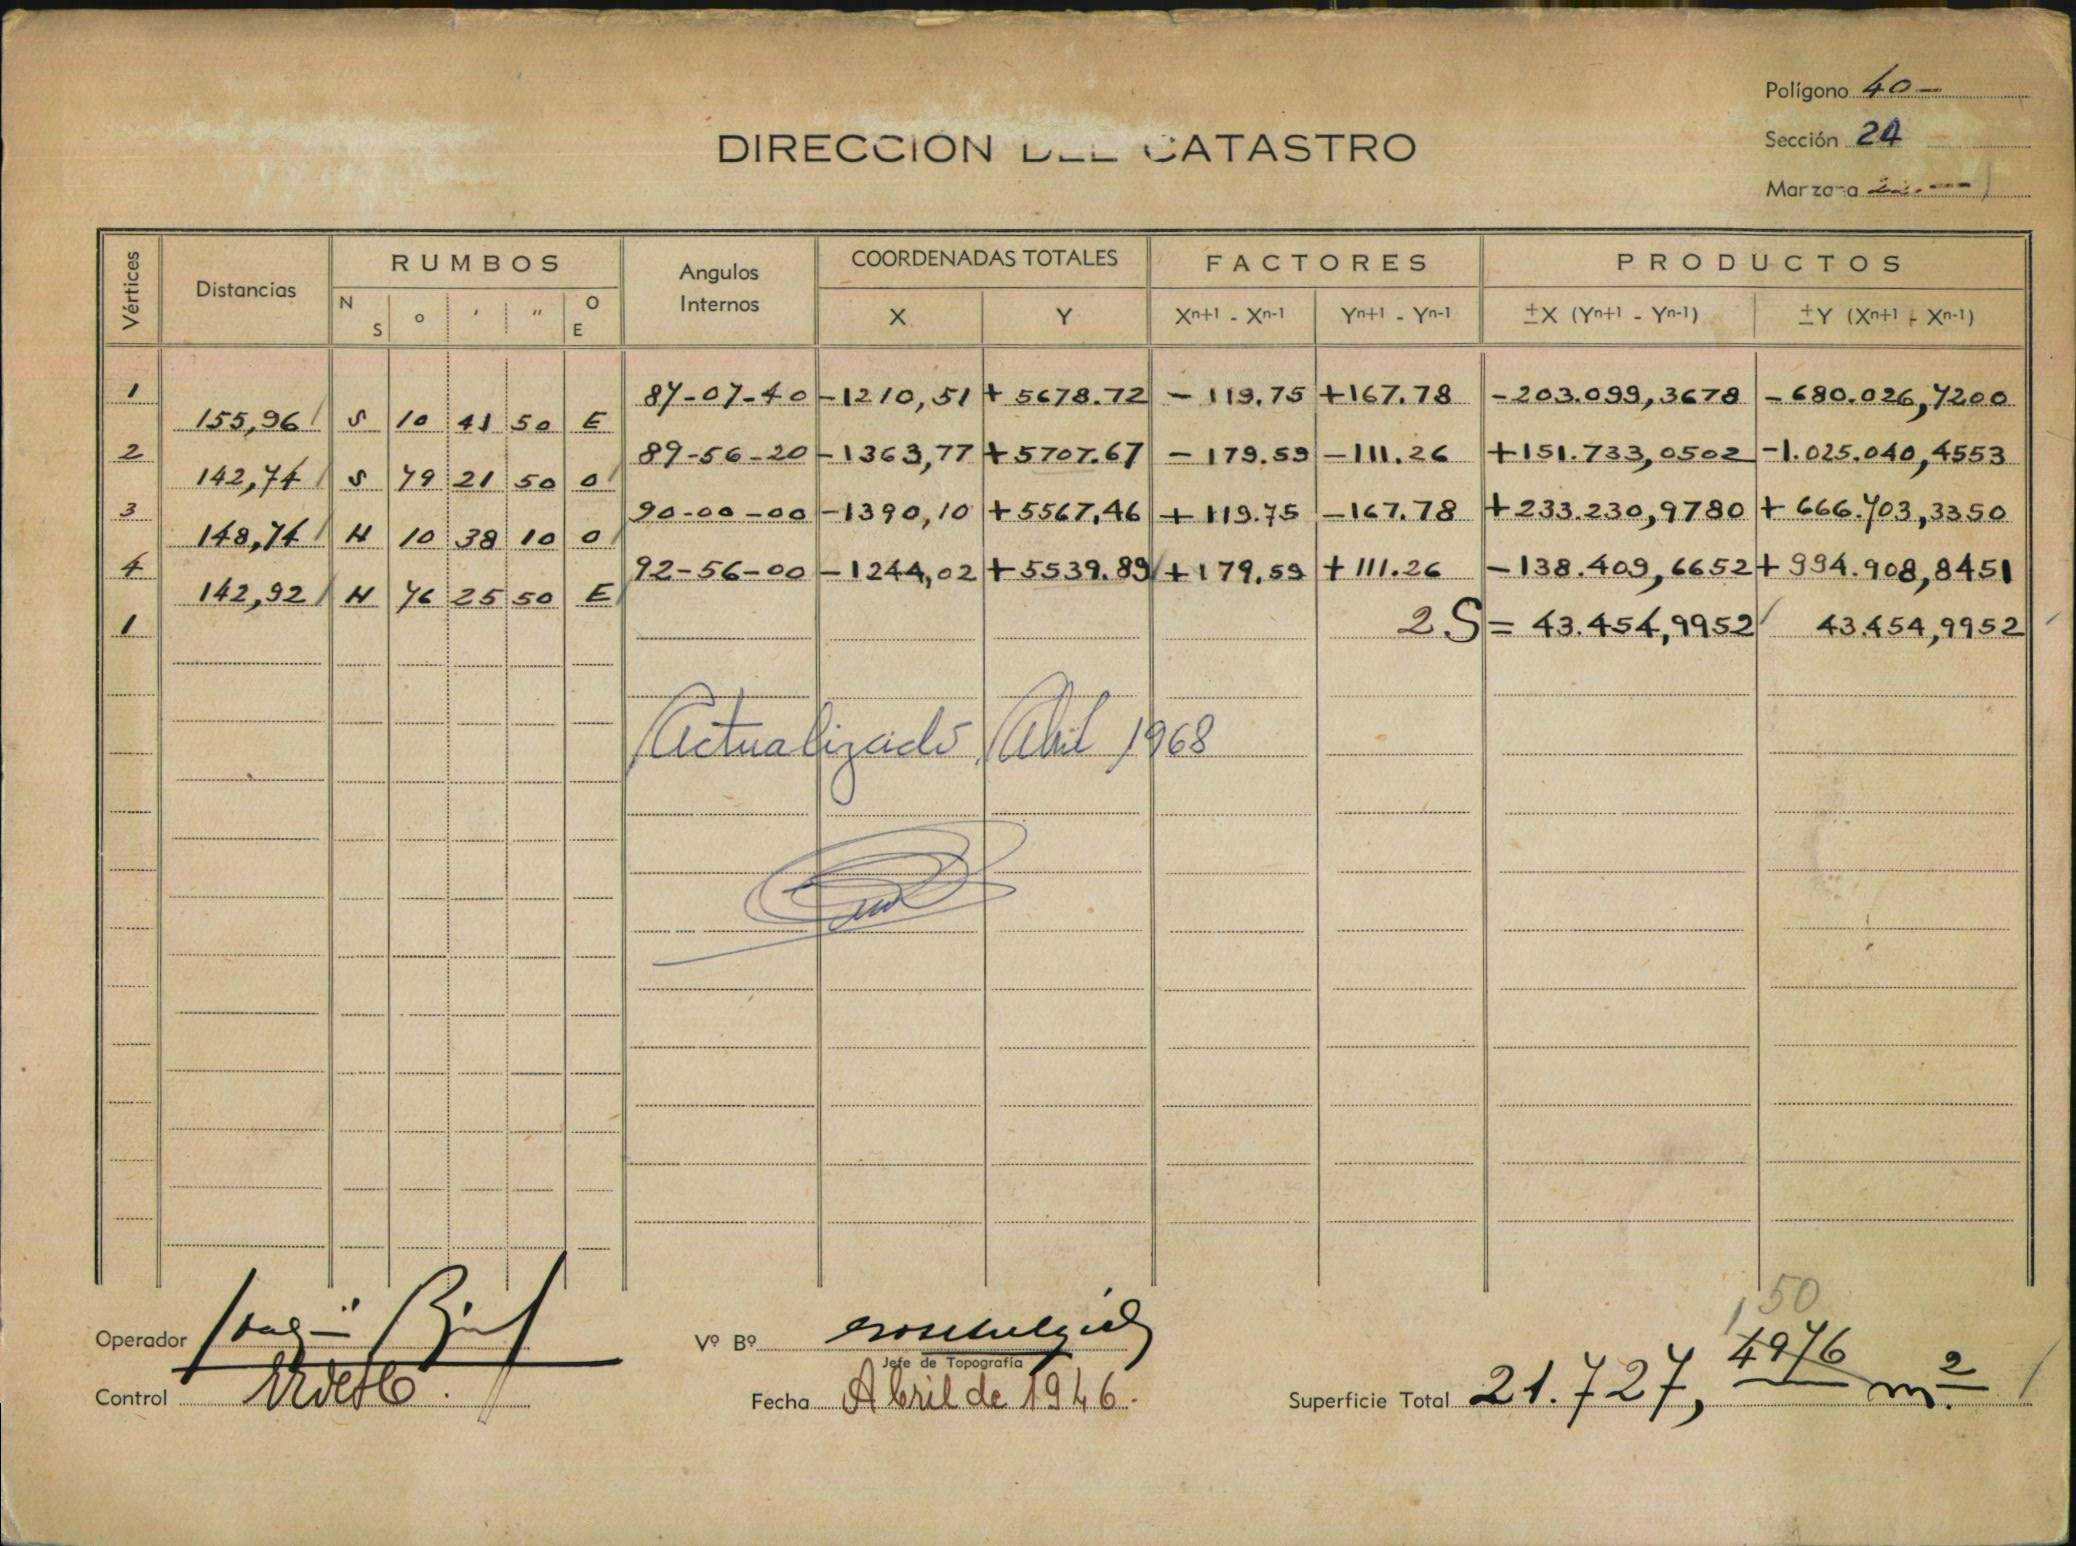 Polígono 40-
DIRECCION DEL CATASTRO
Sección 24
Manzana
Vértices Distancias RUMBOS Angulos Internos COORDENADAS TOTALES FACTORES PRODUCTOS
N S o ' " O E X Y Xn+1 - Xn-1 Yn+1 - Yn-1 ±X (Yn+1 - Yn-1) ±Y (Xn+1 - Xn-1)
1 87-07-40 -1210,51 +5678.72 -119.75 +167.78 -203.099,3678 -680.026,7200
155,96 S 10 41 50 E
2 89-56-20 -1363,77 +5707.67 -179.59 -111.26 +151.733,0502 -1.025.040,4553
142,74 S 79 21 50 O
3 90-00-00 -1390,10 +5567,46 +119.75 -167.78 +233.230,9780 +666.703,3350
148,74 N 10 38 10 O
4 92-56-00 -1244,02 +5539.89 +179.59 +111.26 -138.409,6652 +994.908,8451
142,92 N 76 25 50 E
1 2S= 43.454,9952 43.454,9952
Actualizado Abril 1968
50
Operador Vº Bº
Jefe de Topografía
Control Fecha Abril de 1946. Superficie Total 21.727, 4976 m2